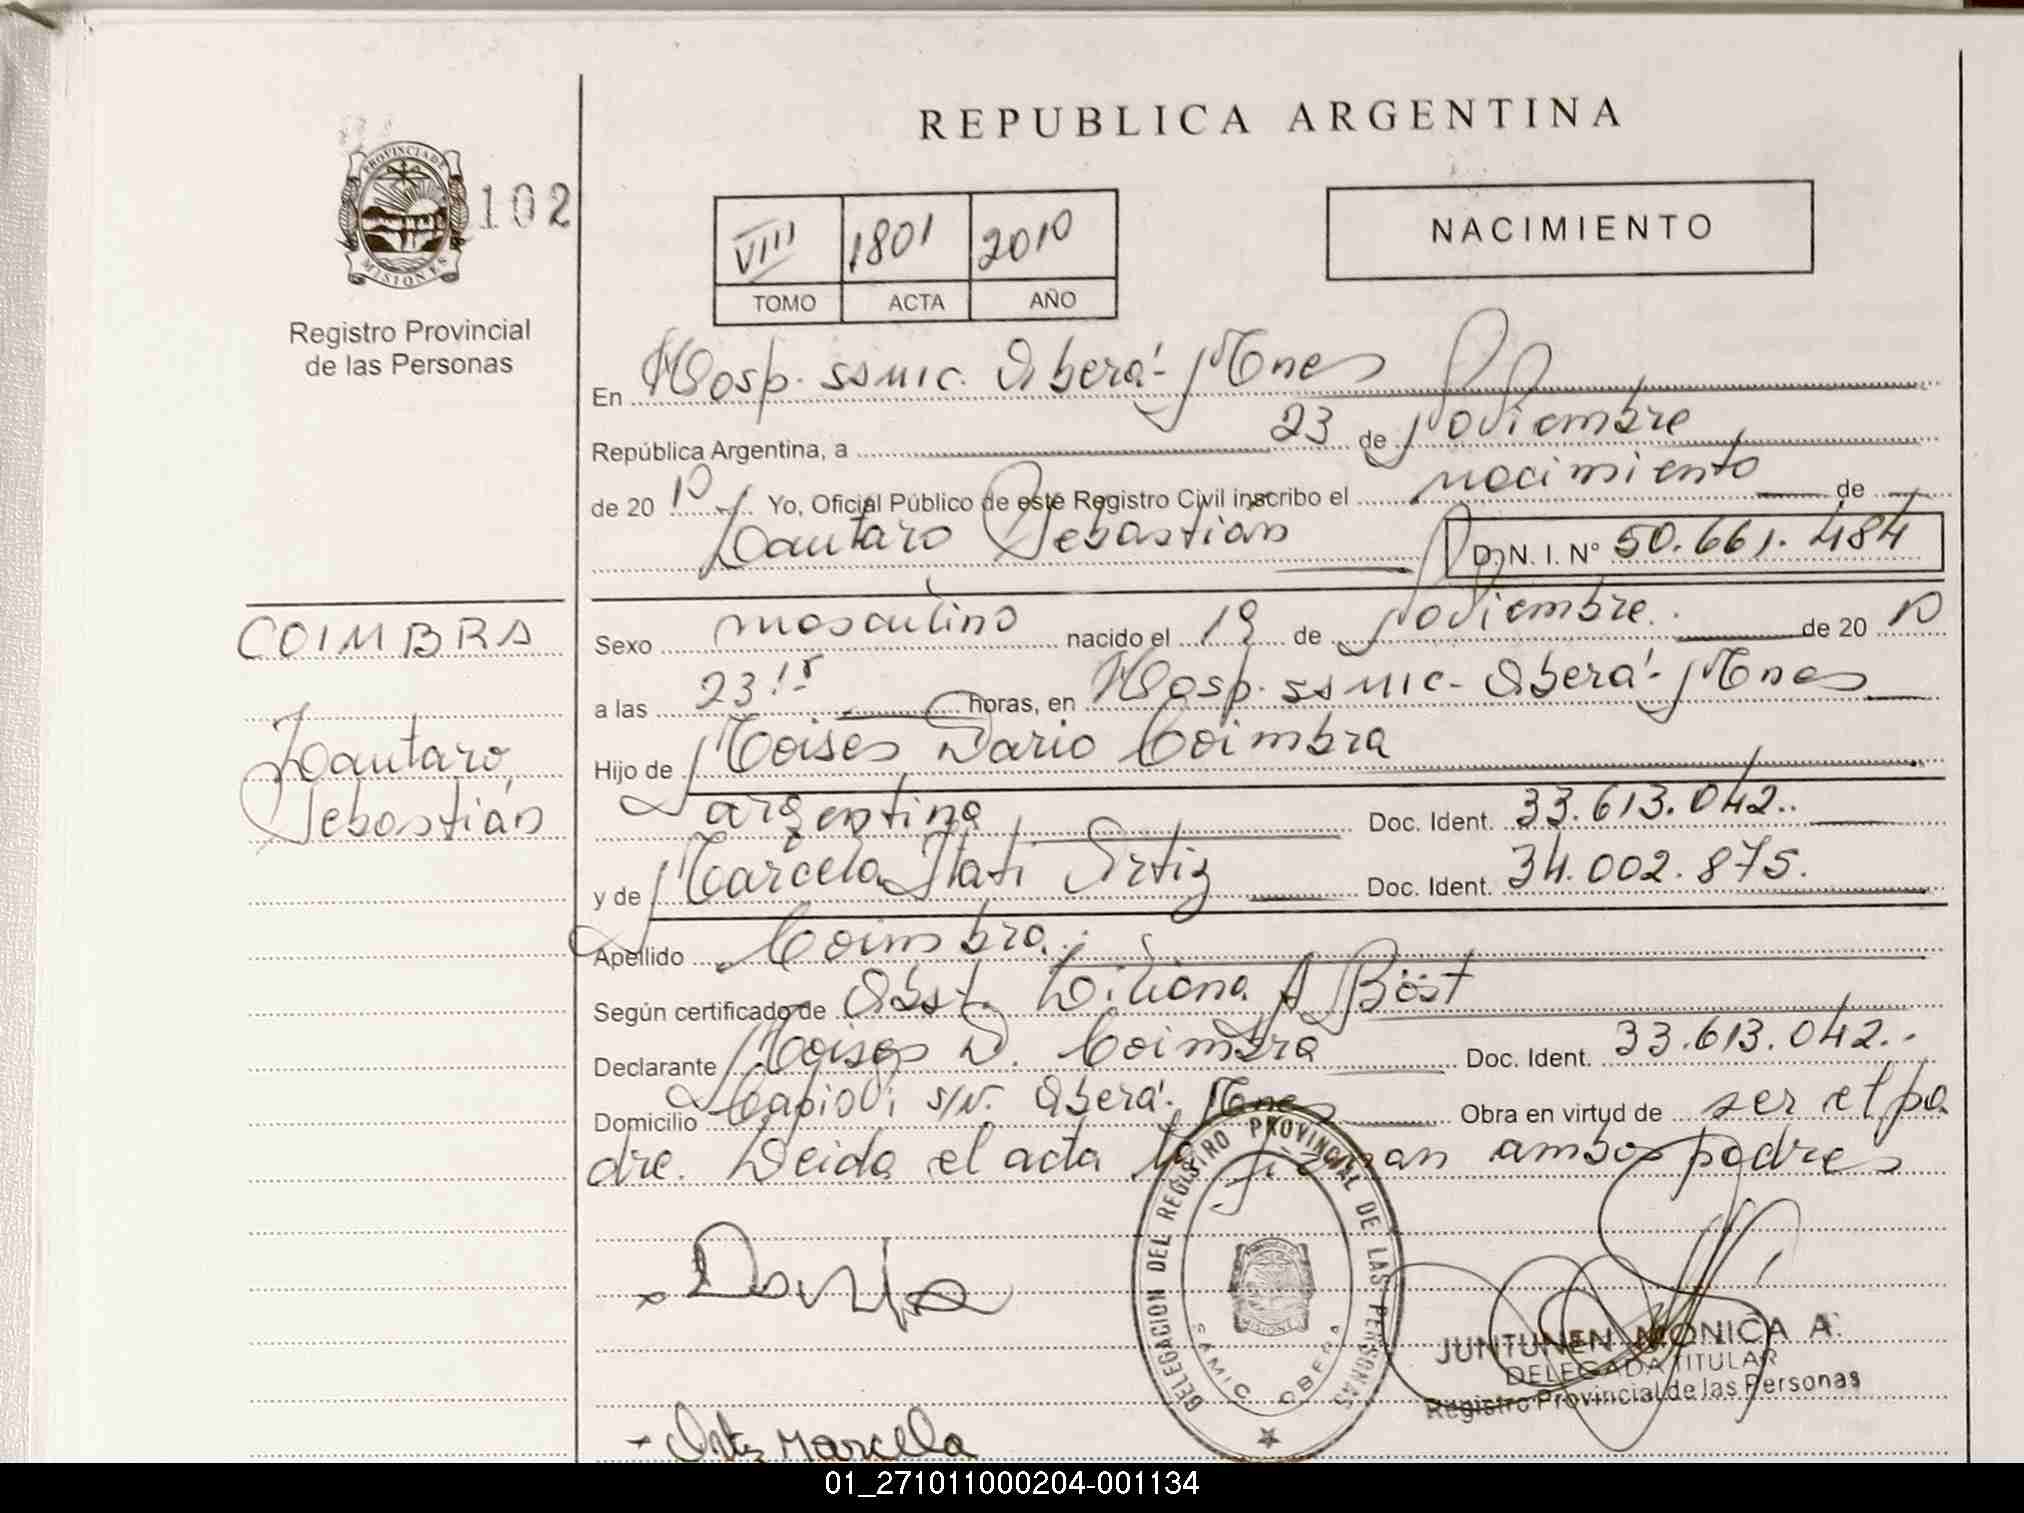 REPUBLICA ARGENTINA
PROVINCIA DE
MISIONES
102
Registro Provincial
de las Personas
VIII 1801 2010
TOMO ACTA AÑO
NACIMIENTO
En Hosp. SSMIC. Oberá - Mnes
República Argentina, a 23 de Noviembre
de 2010 Yo, Oficial Público de este Registro Civil inscribo el nacimiento de
Lautaro Sebastián D. N. I. N° 50.661.484
COIMBRA
Lautaro
Sebastián
Sexo masculino nacido el 19 de Noviembre de 2010
a las 23:15 horas, en Hosp. SSMIC - Oberá - Mnes
Hijo de Moises Dario Coimbra
argentina Doc. Ident. 33.613.042
y de Marcela Itati Ortiz Doc. Ident. 34.002.875.
Apellido Coimbra
Según certificado de Obst. Liliana A Böst
Declarante Moises D. Coimbra Doc. Ident. 33.613.042
Domicilio Capiovi s/N. Oberá - Mnes Obra en virtud de ser el pa
dre. Leida el acta la firman ambos padres
DELEGACION DEL REGISTRO PROVINCIAL DE LAS PERSONAS
SAMIC OBERA
MISIONES
JUNTUNEN MONICA A.
DELEGADA TITULAR
Registro Provincial de las Personas
Ortiz Marcela
01_271011000204-001134